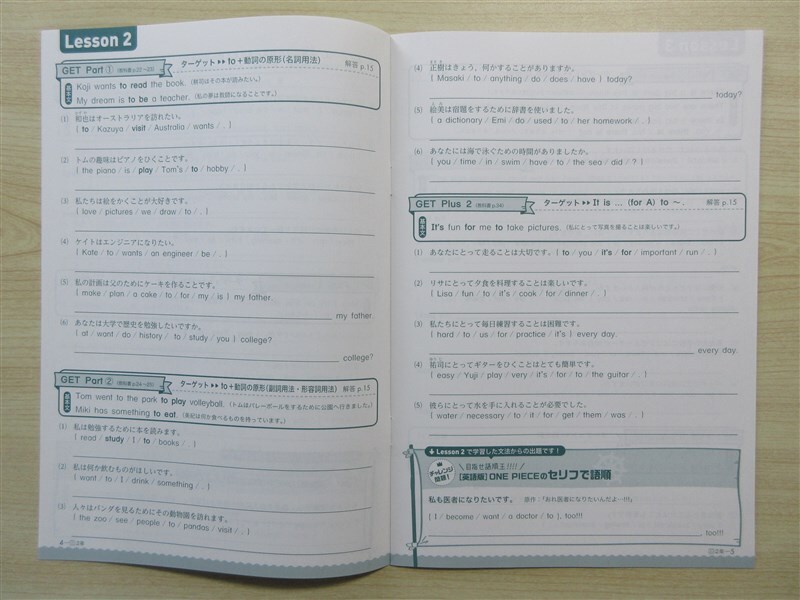 Lesson 2
GET Part ① (教科書 p.22~23) ターゲット▶▶to+動詞の原形(名詞用法) 解答 p.15
基本文
Koji wants to read the book. (耕司はその本が読みたい。)
My dream is to be a teacher. (私の夢は教師になることです。)
(1) 和也はオーストラリアを訪れたい。
[ to / Kazuya / visit / Australia / wants / . ]
(2) トムの趣味はピアノをひくことです。
[ the piano / is / play / Tom's / to / hobby / . ]
(3) 私たちは絵をかくことが大好きです。
[ love / pictures / we / draw / to / . ]
(4) ケイトはエンジニアになりたい。
[ Kate / to / wants / an engineer / be / . ]
(5) 私の計画は父のためにケーキを作ることです。
[ make / plan / a cake / to / for / my / is ] my father.
my father.
(6) あなたは大学で歴史を勉強したいですか。
[ at / want / do / history / to / study / you ] college?
college?
GET Part ② (教科書 p.24~25) ターゲット▶▶to+動詞の原形(副詞用法・形容詞用法) 解答 p.15
基本文
Tom went to the park to play volleyball. (トムはバレーボールをするために公園へ行きました。)
Miki has something to eat. (美紀は何か食べるものを持っています。)
(1) 私は勉強するために本を読みます。
[ read / study / I / to / books / . ]
(2) 私は何か飲むものがほしいです。
[ want / to / I / drink / something / . ]
(3) 人々はパンダを見るためにその動物園を訪れます。
[ the zoo / see / people / to / pandas / visit / . ]
(4) 正樹はきょう、何かすることがありますか。
[ Masaki / to / anything / do / does / have ] today?
today?
(5) 絵美は宿題をするために辞書を使いました。
[ a dictionary / Emi / do / used / to / her homework / . ]
(6) あなたには海で泳ぐための時間がありましたか。
[ you / time / in / swim / have / to / the sea / did / ? ]
GET Plus 2 (教科書 p.34) ターゲット▶▶It is … (for A) to ~ . 解答 p.15
基本文
It's fun for me to take pictures. (私にとって写真を撮ることは楽しいです。)
(1) あなたにとって走ることは大切です。[ to / you / it's / for / important / run / . ]
(2) リサにとって夕食を料理することは楽しいです。
[ Lisa / fun / to / it's / cook / for / dinner / . ]
(3) 私たちにとって毎日練習することは困難です。
[ hard / to / us / for / practice / it's ] every day.
every day.
(4) 祐司にとってギターをひくことはとても簡単です。
[ easy / Yuji / play / very / it's / for / to / the guitar / . ]
(5) 彼らにとって水を手に入れることが必要でした。
[ water / necessary / to / it / for / get / them / was / . ]
Lesson 2 で学習した文法からの出題です!
チャレンジ問題!
目指せ語順王!!!!
[英語版] ONE PIECEのセリフで語順
私も医者になりたいです。 原作:「おれ医者になりたいんだよ…!!!」
[ I / become / want / a doctor / to ], too!!!
too!!!